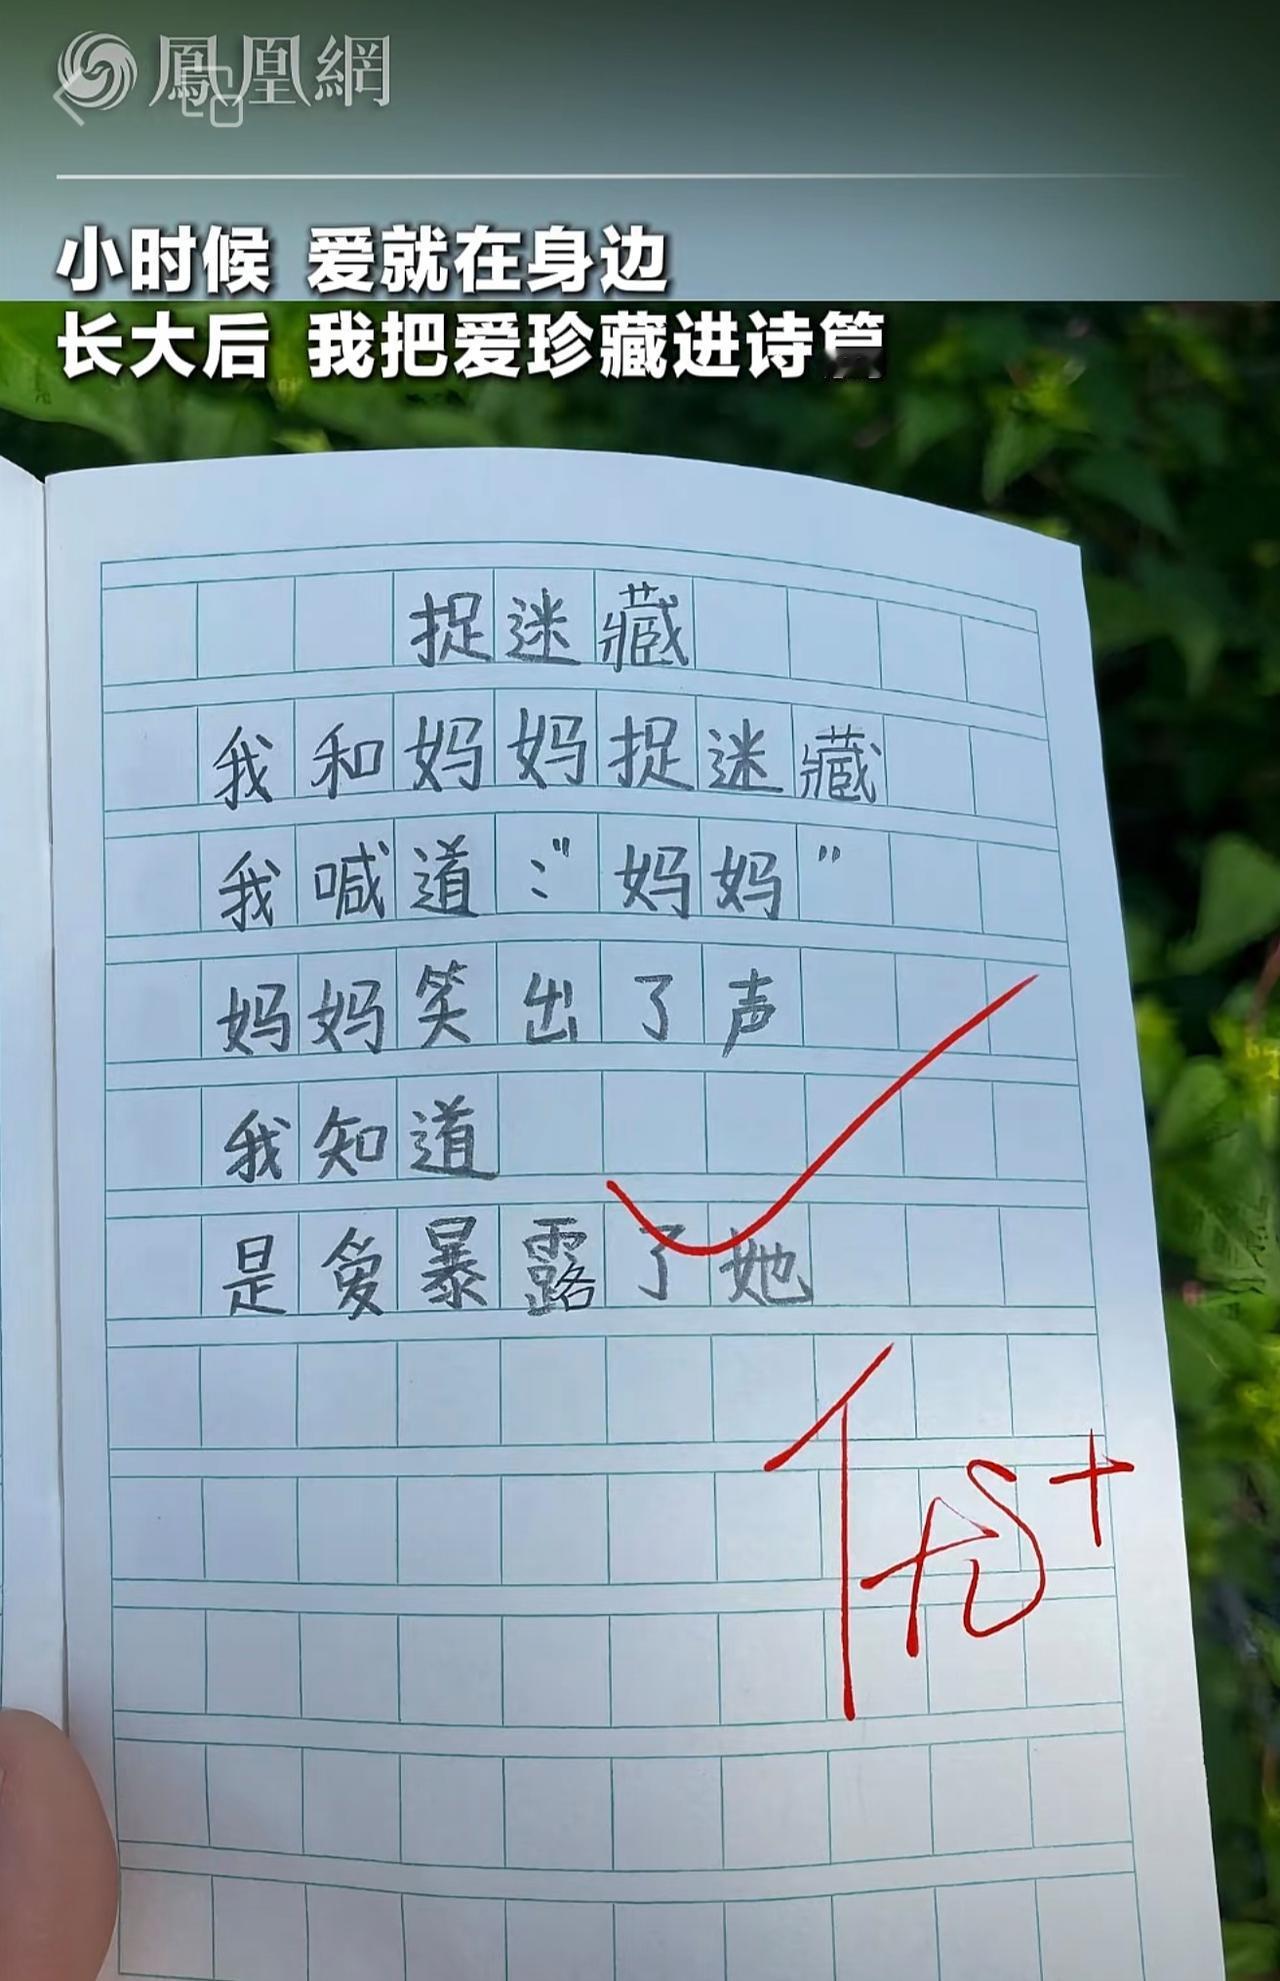 鳳凰網
小时候 爱就在身边
长大后 我把爱珍藏进诗篇
捉迷藏
我和妈妈捉迷藏
我喊道："妈妈"
妈妈笑出了声
我知道
是爱暴露了她
优+